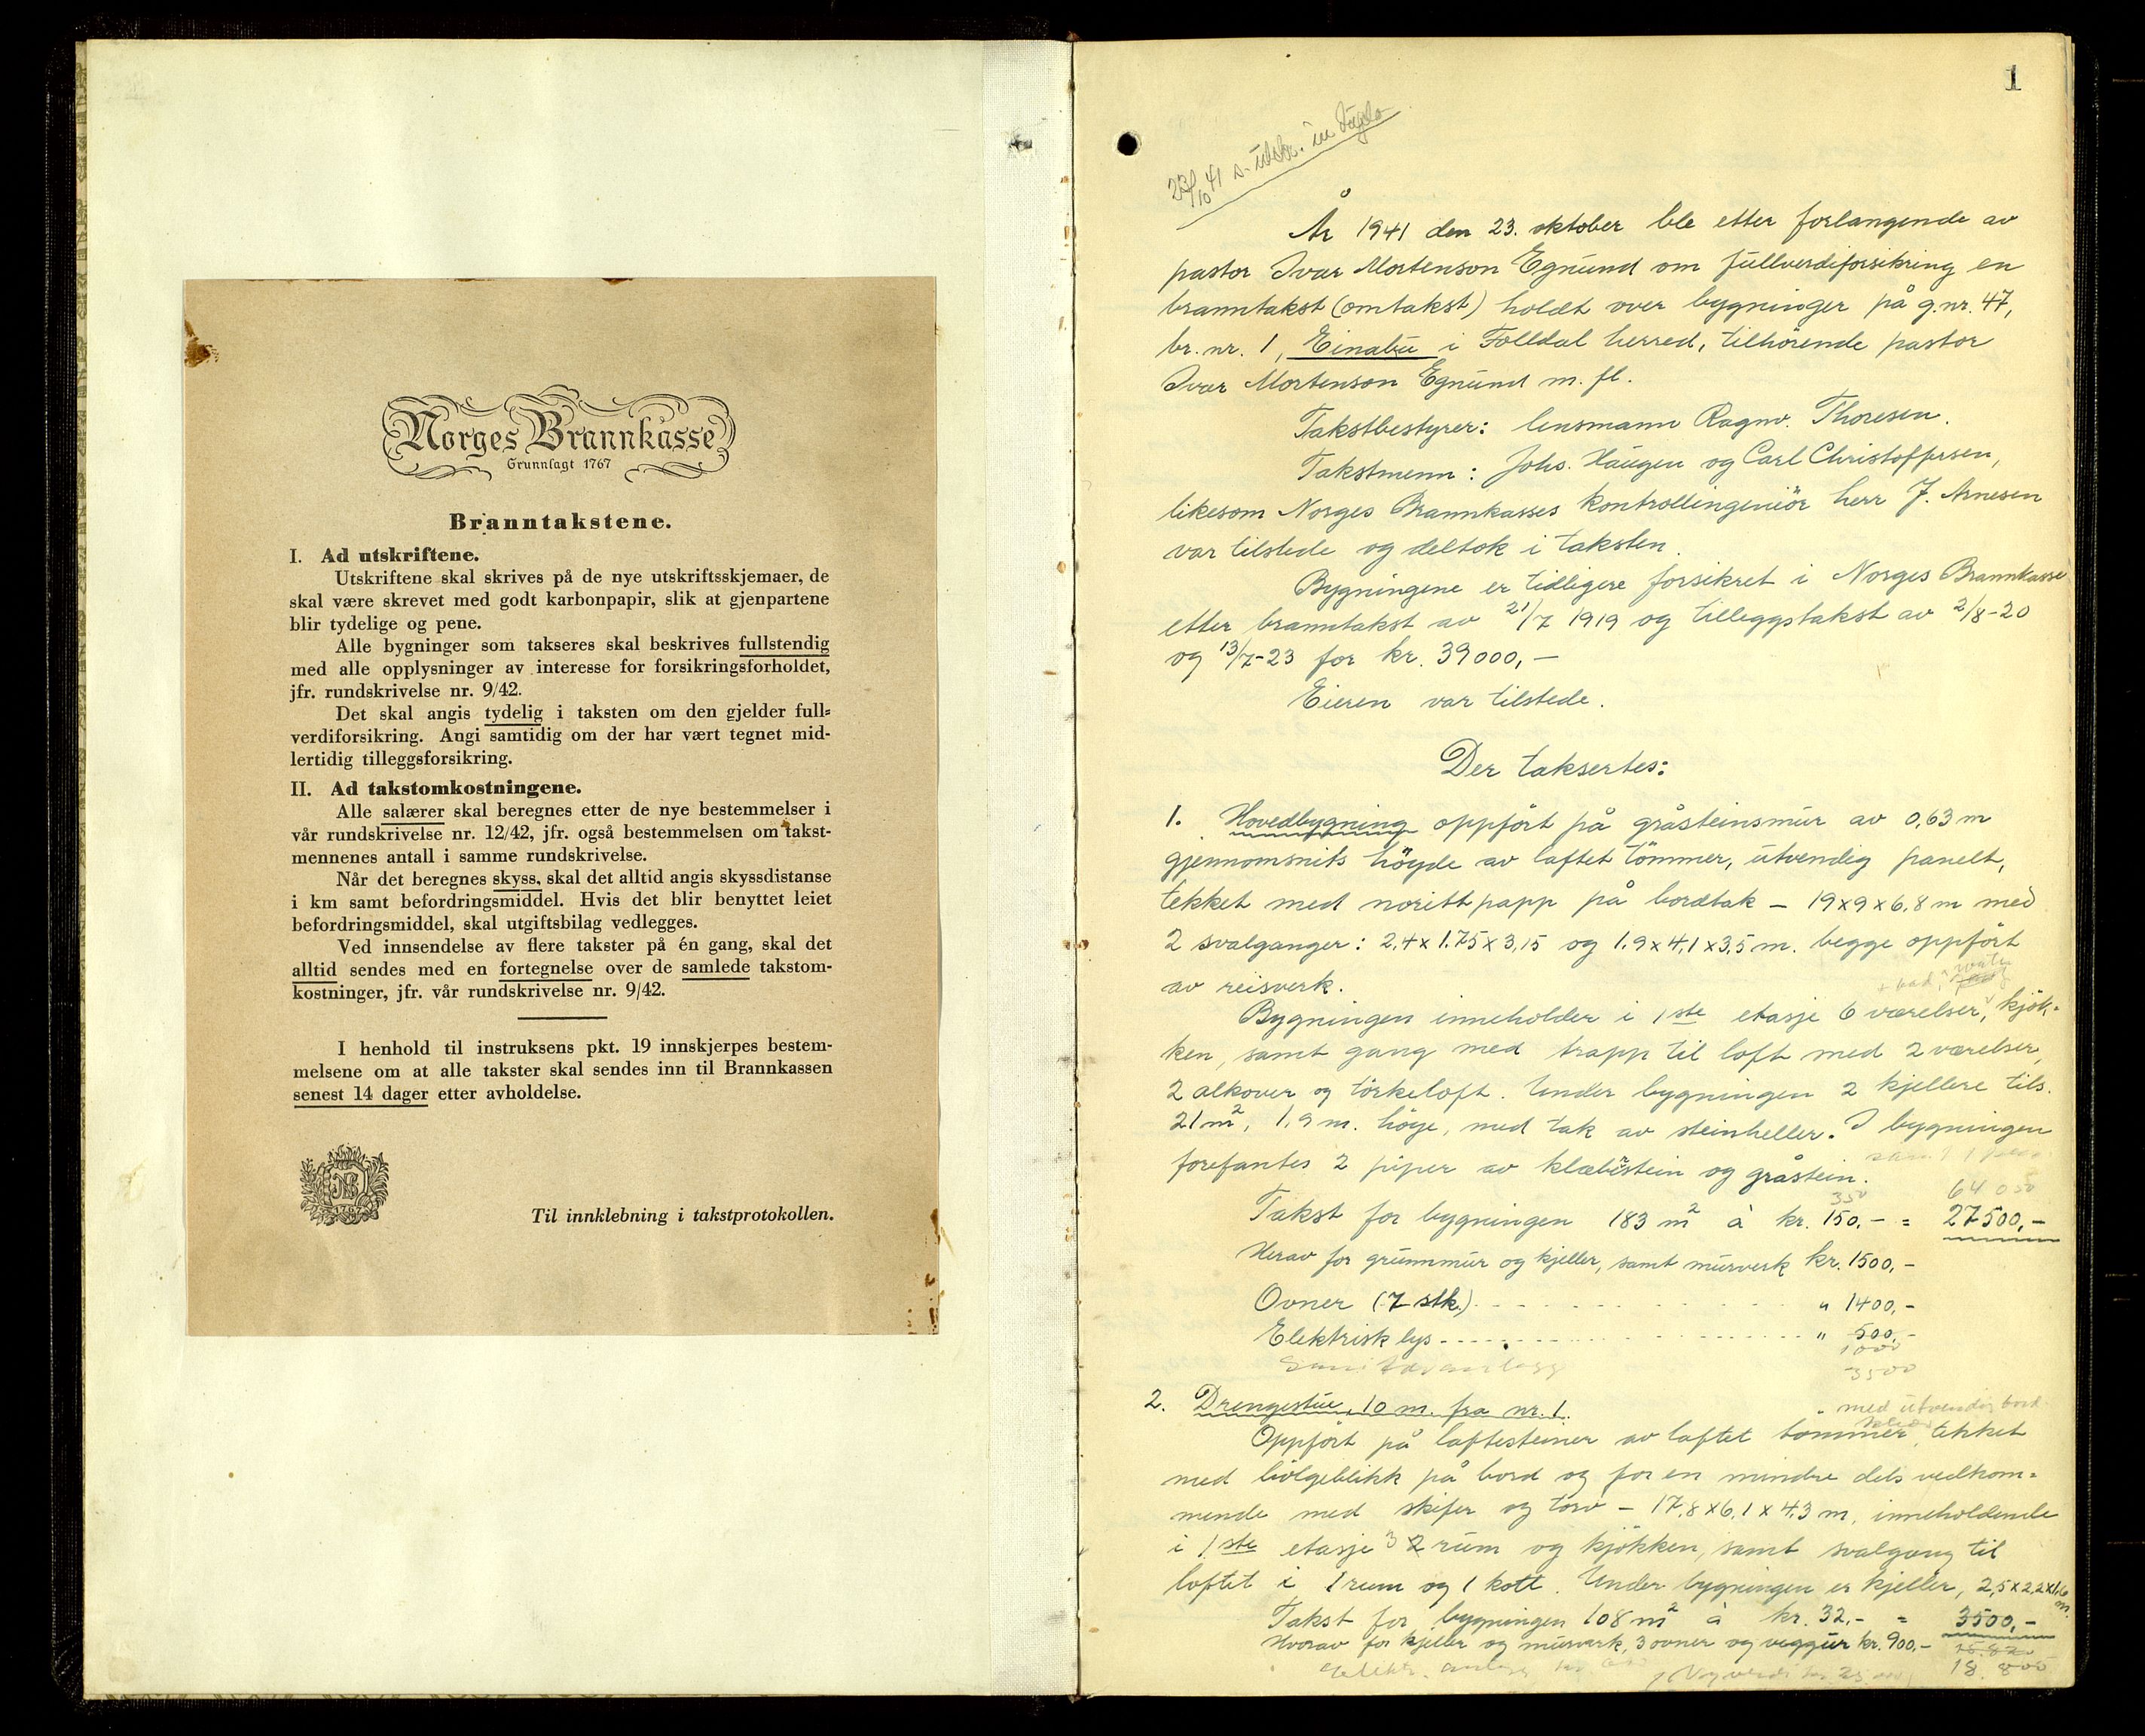 Norges Brannkasse
Grunnlagt 1767
Branntakstene.
I. Ad utskriftene.
Utskriftene skal skrives på de nye utskriftsskjemaer, de
skal være skrevet med godt karbonpapir, slik at gjenpartene
blir tydelige og pene.
Alle bygninger som takseres skal beskrives fullstendig
med alle opplysninger av interesse for forsikringsforholdet,
jfr. rundskrivelse nr. 9/42.
Det skal angis tydelig i taksten om den gjelder full-
verdiforsikring. Angi samtidig om der har vært tegnet mid-
lertidig tilleggsforsikring.
II. Ad takstomkostningene.
Alle salærer skal beregnes etter de nye bestemmelser i
vår rundskrivelse nr. 12/42, jfr. også bestemmelsen om takst-
mennenes antall i samme rundskrivelse.
Når det beregnes skyss, skal det alltid angis skyssdistanse
i km samt befordringsmiddel. Hvis det blir benyttet leiet
befordringsmiddel, skal utgiftsbilag vedlegges.
Ved innsendelse av flere takster på én gang, skal det
alltid sendes med en fortegnelse over de samlede takstom-
kostninger, jfr. vår rundskrivelse nr. 9/42.
I henhold til instruksens pkt. 19 innskjerpes bestem-
melsene om at alle takster skal sendes inn til Brannkassen
senest 14 dager etter avholdelse.
1767
Til innklebning i takstprotokollen.
1
23/10 41
År 1941 den 23. oktober ble etter forlangende av
pastor Ivar Mortenson Egnund om fullverdiforsikring en
branntakst (omtakst) holdt over bygninger på g.nr. 47,
br. nr. 1, Einabu i Folldal herred, tilhørende pastor
Ivar Mortenson Egnund m. fl.
Takstbestyrer: lensmann Ragnv. Thoresen.
Takstmenn: Johs. Haugen og Carl Christoffersen,
likesom Norges Brannkasses kontrollingeniör herr J. Arnesen
var tilstede og deltok i taksten.
Bygningene er tidligere forsikret i Norges Brannkasse
etter branntakst av 21/7 1919 og tilleggstakst av 2/8-20
og 13/7-23 for kr. 39000,-
Eieren var tilstede.
Der taksertes:
1. Hovedbygning oppfört på gråsteinsmur av 0,63 m
gjennomsnits höyde av laftet tömmer, utvendig panelt,
tekket med noritt papp på bordtak - 19 x 9 x 6,8 m med
2 svalganger: 2,4 x 1.75 x 3,15 og 1.9 x 4,1 x 3,5 m. begge oppfört
av reisverk.
+ bad,
Bygningen inneholder i 1ste etasje 6 værelser, kjök-
ken, samt gang med trapp til loft med 2 værelser,
2 alkover og törkeloft. Under bygningen 2 kjellere tils.
21 m², 1,9 m. höye, med tak av steinheller. I bygningen
forefantes 2 piper av klæberstein og gråstein.
samt 1
350 64 050
Takst for bygningen 183 m² à kr. 150,- = 27500,-
Herav for grunnmur og kjeller, samt murverk kr. 1500,-
Ovner (7 stk.) " 1400,-
Elektrisk lys " 500,-
1000
Sanitæranlegg 3500
2. Drengestue, 10 m. fra nr. 1.
med utvendig bord
Oppfört på laftesteiner av laftet tömmer, tekket
med bölgeblikk på bord og for en mindre dels vedkom-
mende med skifer og torv - 17,8 x 6,1 x 4,3 m, inneholdende
i 1ste etasje 3 2 rum og kjökken, samt svalgang til
loftet i 1 rum og 1 kott. Under bygningen er kjeller, 2,5 x 2,2 x 1,6 m.
Takst for bygningen 108 m² à kr. 32,- = 3500,-
Hvorav for kjeller og murverk, 3 ovner og veggur kr. 900,-
18.800